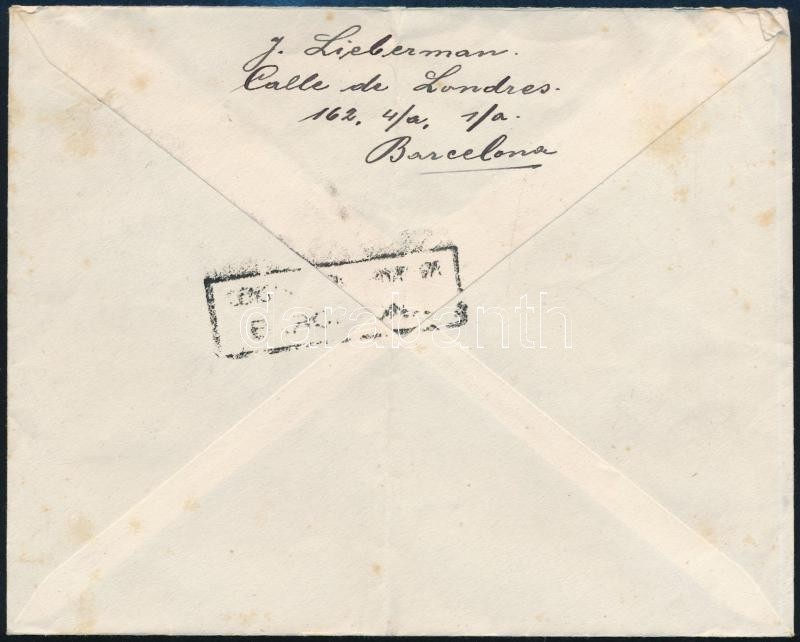 J. Lieberman.
Calle de Londres.
162. 4/a. 1/a.
Barcelona
darabanth